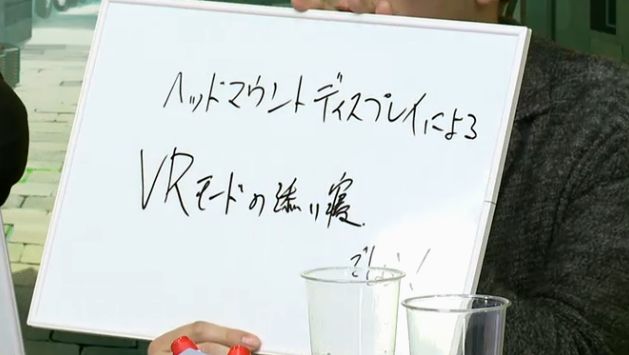 ヘッドマウントディスプレイによる
VRモードの添い寝.